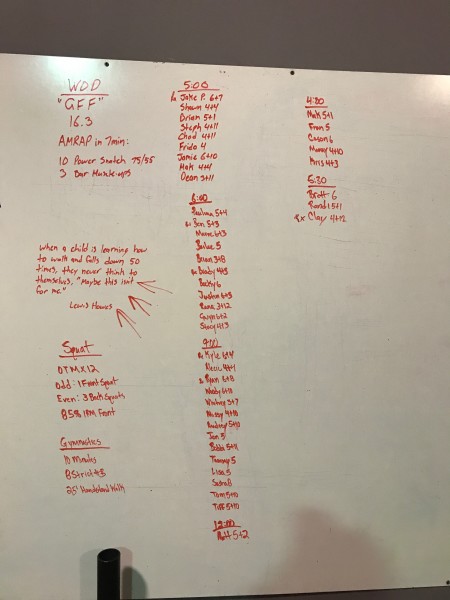 WOD
"GFF"
16.3
AMRAP in 7min:
10 Power Snatch 75/55
3 Bar Muscle-ups
When a child is learning how
to walk and falls down 50
times, they never think to
themselves, "Maybe this isn't
for me."
Lewis Howes
Squat
OTM x 12
Odd: 1 Front Squat
Even: 3 Back Squats
85% 1RM Front
Gymnastics
10 Minutes
8 Strict
25' Handstand Walk
5:00
Jake P. 6+7
Shawn 4+4
Brian 5+1
Steph 4+11
Chad 4+11
Frido 4
Jamie 6+10
Mak 4+11
Dean 3+11
6:00
Paulina 5+4
Ben 5+3
Marc 6+3
5
Brian 3+8
Bobby 4+3
Becky 6
Justin 6+3
3+12
Gwyn 6+2
Stacy 4+3
9:00
Kyle
4+1
Ryan 6+8
Whitney 3+7
4+10
5+10
Jon 5
5+11
Tammy 5
Lisa 5
8
Tom 5+10
Tiff 5+10
12:00
Matt 5+2
4:30
5+1
Fran 5
Carson 6
4+10
Kris 4+3
5:30
Brett 6
5+1
Rx Clay 4+12